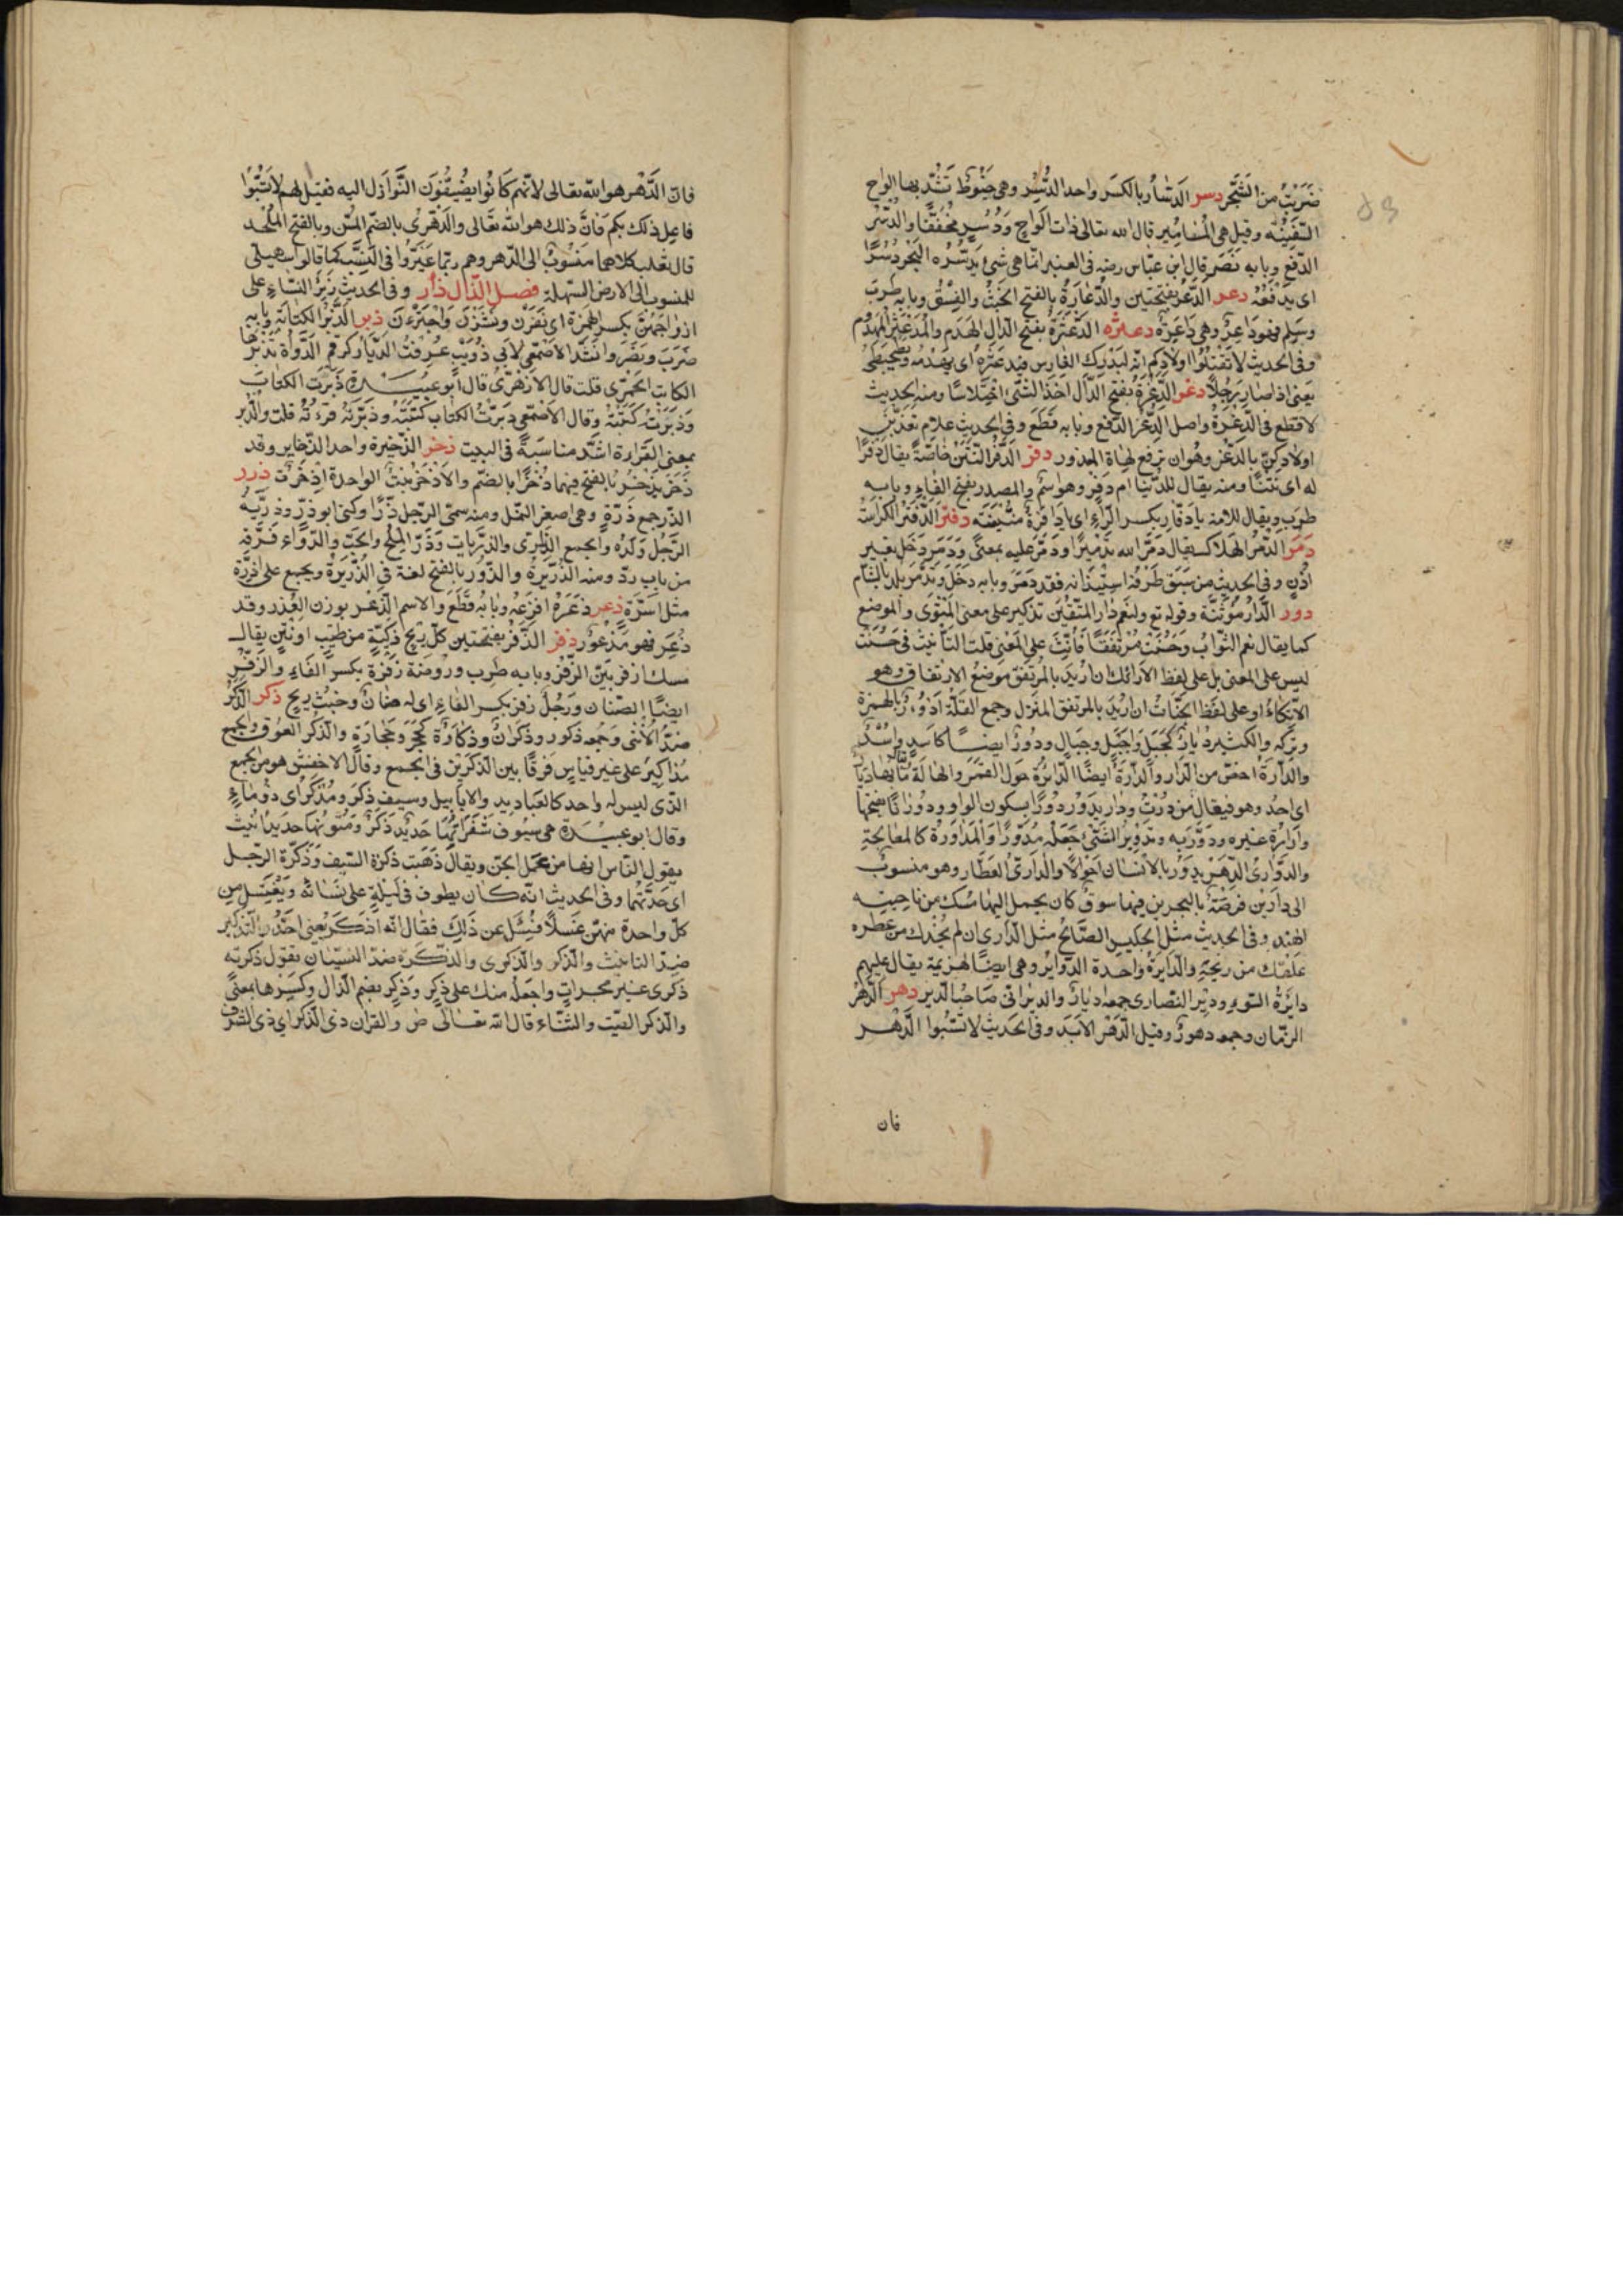 ضربت من الشجر دسر الدسار بالكسر واحد الدسر وهي خيوط تشد بها الواح
السفينة وقيل هي المسامير قال الله تعالى ذات الواح ودسر مخففا والدسر
الدفع وبابه نصر قال ابن عباس رضه في العنبر انما هي شئ يدسره البحر دسرا
اي يدفعه دعر الدعر بفتحتين والدعارة بالفتح الخبث والفسق وبابه طرب
وسلم فهو داعر وهي داعرة دعثره الدعثرة بفتح الدال الهدم والمدعثر المهدوم
وفي الحديث لا تقتلوا اولادكم انه ليدرك الفارس فيدعثره اي يهدمه ويطحطحه
يعني اذا صار رجلا دغر الدغرة بفتح الدال اخذ الشئ اختلاسا ومنه الحديث
لا قطع في الدغرة واصل الدغر الدفع وبابه قطع وفي الحديث علام تعذبن
اولادكن بالدغر وهو ان ترفع لهاة المعذور دفر الدفر النتن خاصة يقال دفرا
له اي نتنا ومنه يقال للدنيا ام دفر وهو اسم والمصدر بفتح الفاء وبابه
طرب ويقال للامة يا دفار بكسر الراء اي يا دافرة منتنة دفتر الدفتر الكراسة
دمر الدمر الهلاك يقال دمر الله تدميرا ودمر عليه بمعنى ودمر دخل بغير
اذن وفي الحديث من سبق طرفه استيذانه فقد دمر وبابه دخل وتدمر بلد بالشام
دور الدار مؤنثة وقوله تع ولنعم دار المتقين تذكير على معنى المثوى والموضع
كما يقال نعم الثواب وحسنت مرتفقا فانث على المعنى قلت التأنيث في حسنت
ليس على المعنى بل على لفظ الارائك ان اريد بالمرتفق موضع الارتفاق وهو
الاتكاء او على لفظ الجنات ان اريد بالمرتفق المنزل وجمع القلة ادؤر بالهمزة
وتركه والكثير ديار كجبل واجبل وجبال ودور ايضا كاسد واسد
والدارة اخص من الدار والدارة ايضا الدائرة حول القمر والهالة ما بها ديار
اي احد وهو فيعال من درت ودار يدور دورا بسكون الواو ودورانا بفتحها
واداره غيره ودور به وتدوير الشئ جعله مدورا والمداورة كالمعالجة
والدواري الدهر يدور بالانسان احوالا والداري العطار وهو منسوب
الى دارين فرضة بالبحرين فيها سوق كان يحمل اليها مسك من ناحية
الهند وفي الحديث مثل الجليس الصالح مثل الداري ان لم يحذك من عطره
علقك من ريحه والدايرة واحدة الدواير وهي ايضا الهزيمة يقال عليهم
دايرة السوء ودير النصارى جمعه اديار والديراني صاحب الدير دهر الدهر
الزمان وجمعه دهور وقيل الدهر الابد وفي الحديث لا تسبوا الدهر
فان
فان الدهر هو الله تعالى لانهم كانوا يضيفون النوازل اليه فقيل لهم لا تسبوا
فاعل ذلك بكم فان ذلك هو الله تعالى والدهري بالضم المسن وبالفتح الملحد
قال ثعلب كلاهما منسوب الى الدهر وهم ربما غيروا في النسب كما قالوا سهيلي
للمنسوب الى الارض السهلة فصل الذال ذأر وفي الحديث ذئر النساء على
ازواجهن بكسر الهمزة اي نفرن ونشزن واجترءن ذبر الذبر الكتابة وبابه
ضرب ونصر وانشد الاصمعي لابي ذؤيب عرفت الديار كرقم الدواة يذبرها
الكاتب الحميري قلت قال الازهري قال ابو عبيدة ذبرت الكتاب
وزبرته كتبته وقال الاصمعي زبرت الكتاب كتبته وذبرته قرءته قلت والذبر
بمعنى القراءة اشد مناسبة في البيت ذخر الذخيرة واحد الذخاير وقد
ذخر يذخر بالفتح فيهما ذخرا بالضم والاذخر نبت الواحدة اذخرة ذرر
الذر جمع ذرة وهي اصغر النمل ومنه سمي الرجل ذرا وكني ابو ذر وذرية
الرجل ولده والجمع الذراري والذريات وذر الملح والحب والدواء فرقه
من باب رد ومنه الذريرة والذرور بالفتح لغة في الذريرة ويجمع على اذرة
مثل اسرة ذعر ذعره افزعه وبابه قطع والاسم الذعر بوزن العذر وقد
ذعر فهو مذعور ذفر الذفر بفتحتين كل ريح ذكية من طيب او نتن يقال
مسك اذفر بين الذفر وبابه طرب وروضة ذفرة بكسر الفاء والذفر
ايضا الصنان ورجل ذفر بكسر الفاء اي له صنان وخبث ريح ذكر الذكر
ضد الانثى وجمعه ذكور وذكران وذكارة كحجر وحجارة والذكر العوف والجمع
مذاكير على غير قياس فرقا بين الذكرين في الجمع وقال الاخفش هو من الجمع
الذي ليس له واحد كالعباديد والابابيل وسيف ذكر ومذكر اي ذو ماء
وقال ابو عبيدة هي سيوف شفراتها حديد ذكر ومتونها حديد انيث
يقول الناس انها من عمل الجن ويقال ذهبت ذكرة السيف وذكرة الرجل
اي حدتهما وفي الحديث انه كان يطوف في ليلة على نسائه ويغتسل من
كل واحدة منهن غسلا فسئل عن ذلك فقال انه اذكر يعني احد والتذكير
ضد التانيث والذكر والذكرى والذكرة ضد النسيان تقول ذكرته
ذكرى غير مجرات واجعله منك على ذكر وذكر بضم الذال وكسرها بمعنى
والذكر الصيت والثناء قال الله تعالى ص والقران ذي الذكر اي ذي الشرف